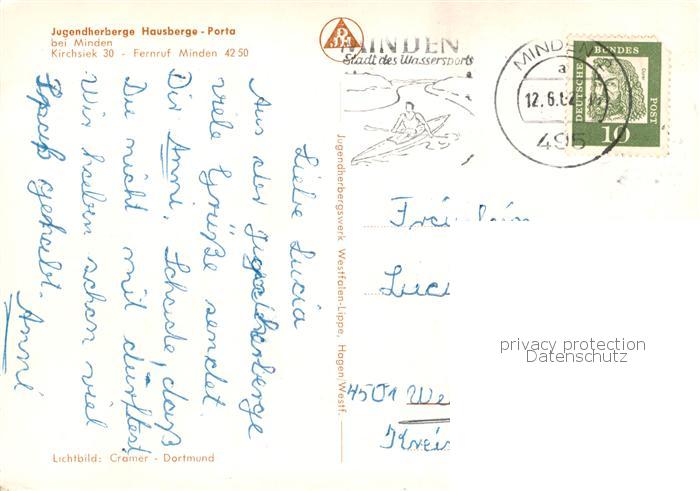 Jugendherberge Hausberge - Porta
bei Minden
Kirchsiek 30 - Fernruf Minden 42 50
Liebe Lucia
Aus der Jugendherberge
viele Grüße sendet
Dir Anni. Schade, daß
Du nicht mit durftest
Wir haben schon viel
Spaß gehabt.
Anni
Lichtbild: Cramer - Dortmund
Jugendherbergswerk Westfalen-Lippe, Hagen/Westf.
MINDEN
Stadt des Wassersports
MINDEN
a
12.6.62
495
DEUTSCHE BUNDESPOST
10
Fräulein
Luci
4501 We
Krei
privacy protection
Datenschutz